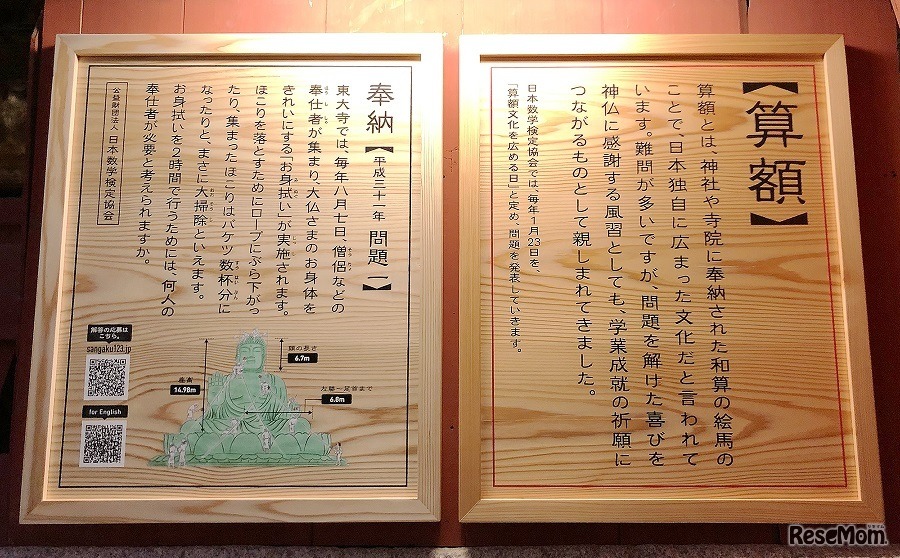 【算額】
算額とは、神社や寺院に奉納された和算の絵馬の
ことで、日本独自に広まった文化だと言われて
います。難問が多いですが、問題を解けた喜びを
神仏に感謝する風習としても、学業成就の祈願に
つながるものとして親しまれてきました。
日本数学検定協会では、毎年1月23日を、
「算額文化を広める日」と定め、問題を発表していきます。
奉納【平成三十一年 問題一】
東大寺では、毎年八月七日、僧侶などの
奉仕者が集まり、大仏さまのお身体を
きれいにする「お身拭い」が実施されます。
ほこりを落とすためにロープにぶら下がっ
たり、集まったほこりはバケツ数杯分に
なったりと、まさに大掃除といえます。
お身拭いを2時間で行うためには、何人の
奉仕者が必要と考えられますか。
公益財団法人 日本数学検定協会
解答の応募は
こちら。
sangaku123.jp
for English
頭の長さ
6.7m
座高
14.98m
左膝〜足首まで
6.8m
ReseMom.
リセマム